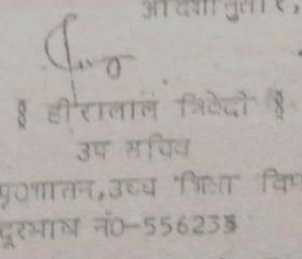 आदेशानुसार,
§ हीरालाल त्रिवेदी §
उप सचिव
प्रशासन, उच्च शिक्षा
दूरभाष नं0-556235